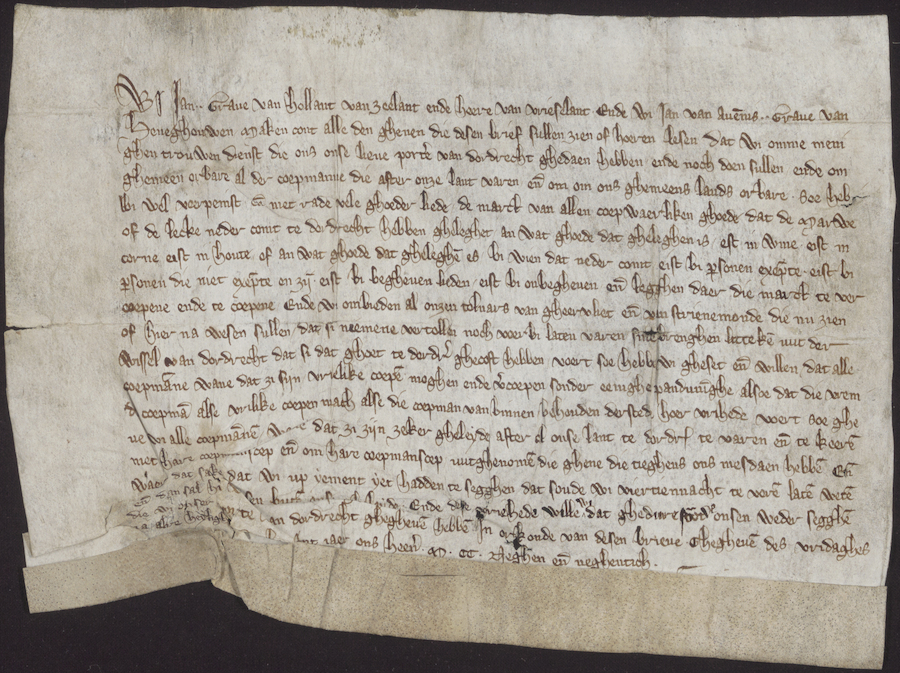 WI Jan .. Graue van hollant van zeelant ende heere van vrieselant Ende wi Jan van auēnis .. Graue van
Heneghouwen Maken cont alle den ghenen die desen brief sullen zien of hooren lesen dat wi omme meni
ghen trouwen dienst die ons onse lieue portē van dordrecht ghedaen hebben ende noch doen sullen ende om
ghemeen orbare al der coepmanne die after onze lant varen eñ om om ons ghemeens lands orbare . Soe hebb
Wi wel voerpenst eñ met rade vele ghoeder liede . de marct van allen coepwaerliken ghoede dat de Marwe
of de lecke neder comt te dordrecht hebben gheleghet an wat ghoede dat gheleghen is , eist in wine eist in
corne eist in houte of an wat ghoede dat gheleghē es bi wien dat neder comt eist bi psonen exēpte . eist bi
psonen die niet exēpte en zijn eist bi begheuen lieden , eist bi onbegheuen eñ legghen daer die marct te ver
coepene ende te coepene Ende wi ombieden al onzen tolnars van gheervliet eñ van strienemonde die nu zien
of hier na wesen sullen dat si neemene vertollen noch voerbi laten varen sine brenghen littekē uut der
wissel van dordrecht dat si dat ghoet te dordr̄ ghecoft hebben voert soe hebbē wi gheset eñ willen , dat alle
coepmāne wane dat zi sijn vrielike coepē moghen ende v̄coepen sonder eenighe pandinīghe alsoe dat die vrem
d coepmā alse vrilike coepen mach alse die coepman van binnen behouden der stede hoer vrihede voert soe ghe
ue wi alle coepmānē dat zi zijn zeker gheleide after al onse lant te dordr̄ te varen eñ te keerē
met hare coepmanscep eñ om hare coepmanscep uutghenomē die ghene die tieghens ons mesdaen hebbē Eñ
waer dat sake dat wi up yement yet hadden te segghen dat soude wi viertiennacht te vorē latē wetē
eñ dan sal hi sen buten onsen lande . Ende dese vriehede willē wi dat ghedure tote onsen weder segghē
die wi onsen porte van dordrecht ghegheuē hebbē In orkonde van desen brieue Ghegheuē des vridaghes
int iaer ons heerē . M . CC . Neghen eñ neghentich .